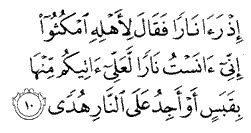 إِذْ رَءَا نَارًا فَقَالَ لِأَهْلِهِ ٱمْكُثُوٓا۟
إِنِّىٓ ءَانَسْتُ نَارًا لَّعَلِّىٓ ءَاتِيكُم مِّنْهَا
بِقَبَسٍ أَوْ أَجِدُ عَلَى ٱلنَّارِ هُدًى ١٠